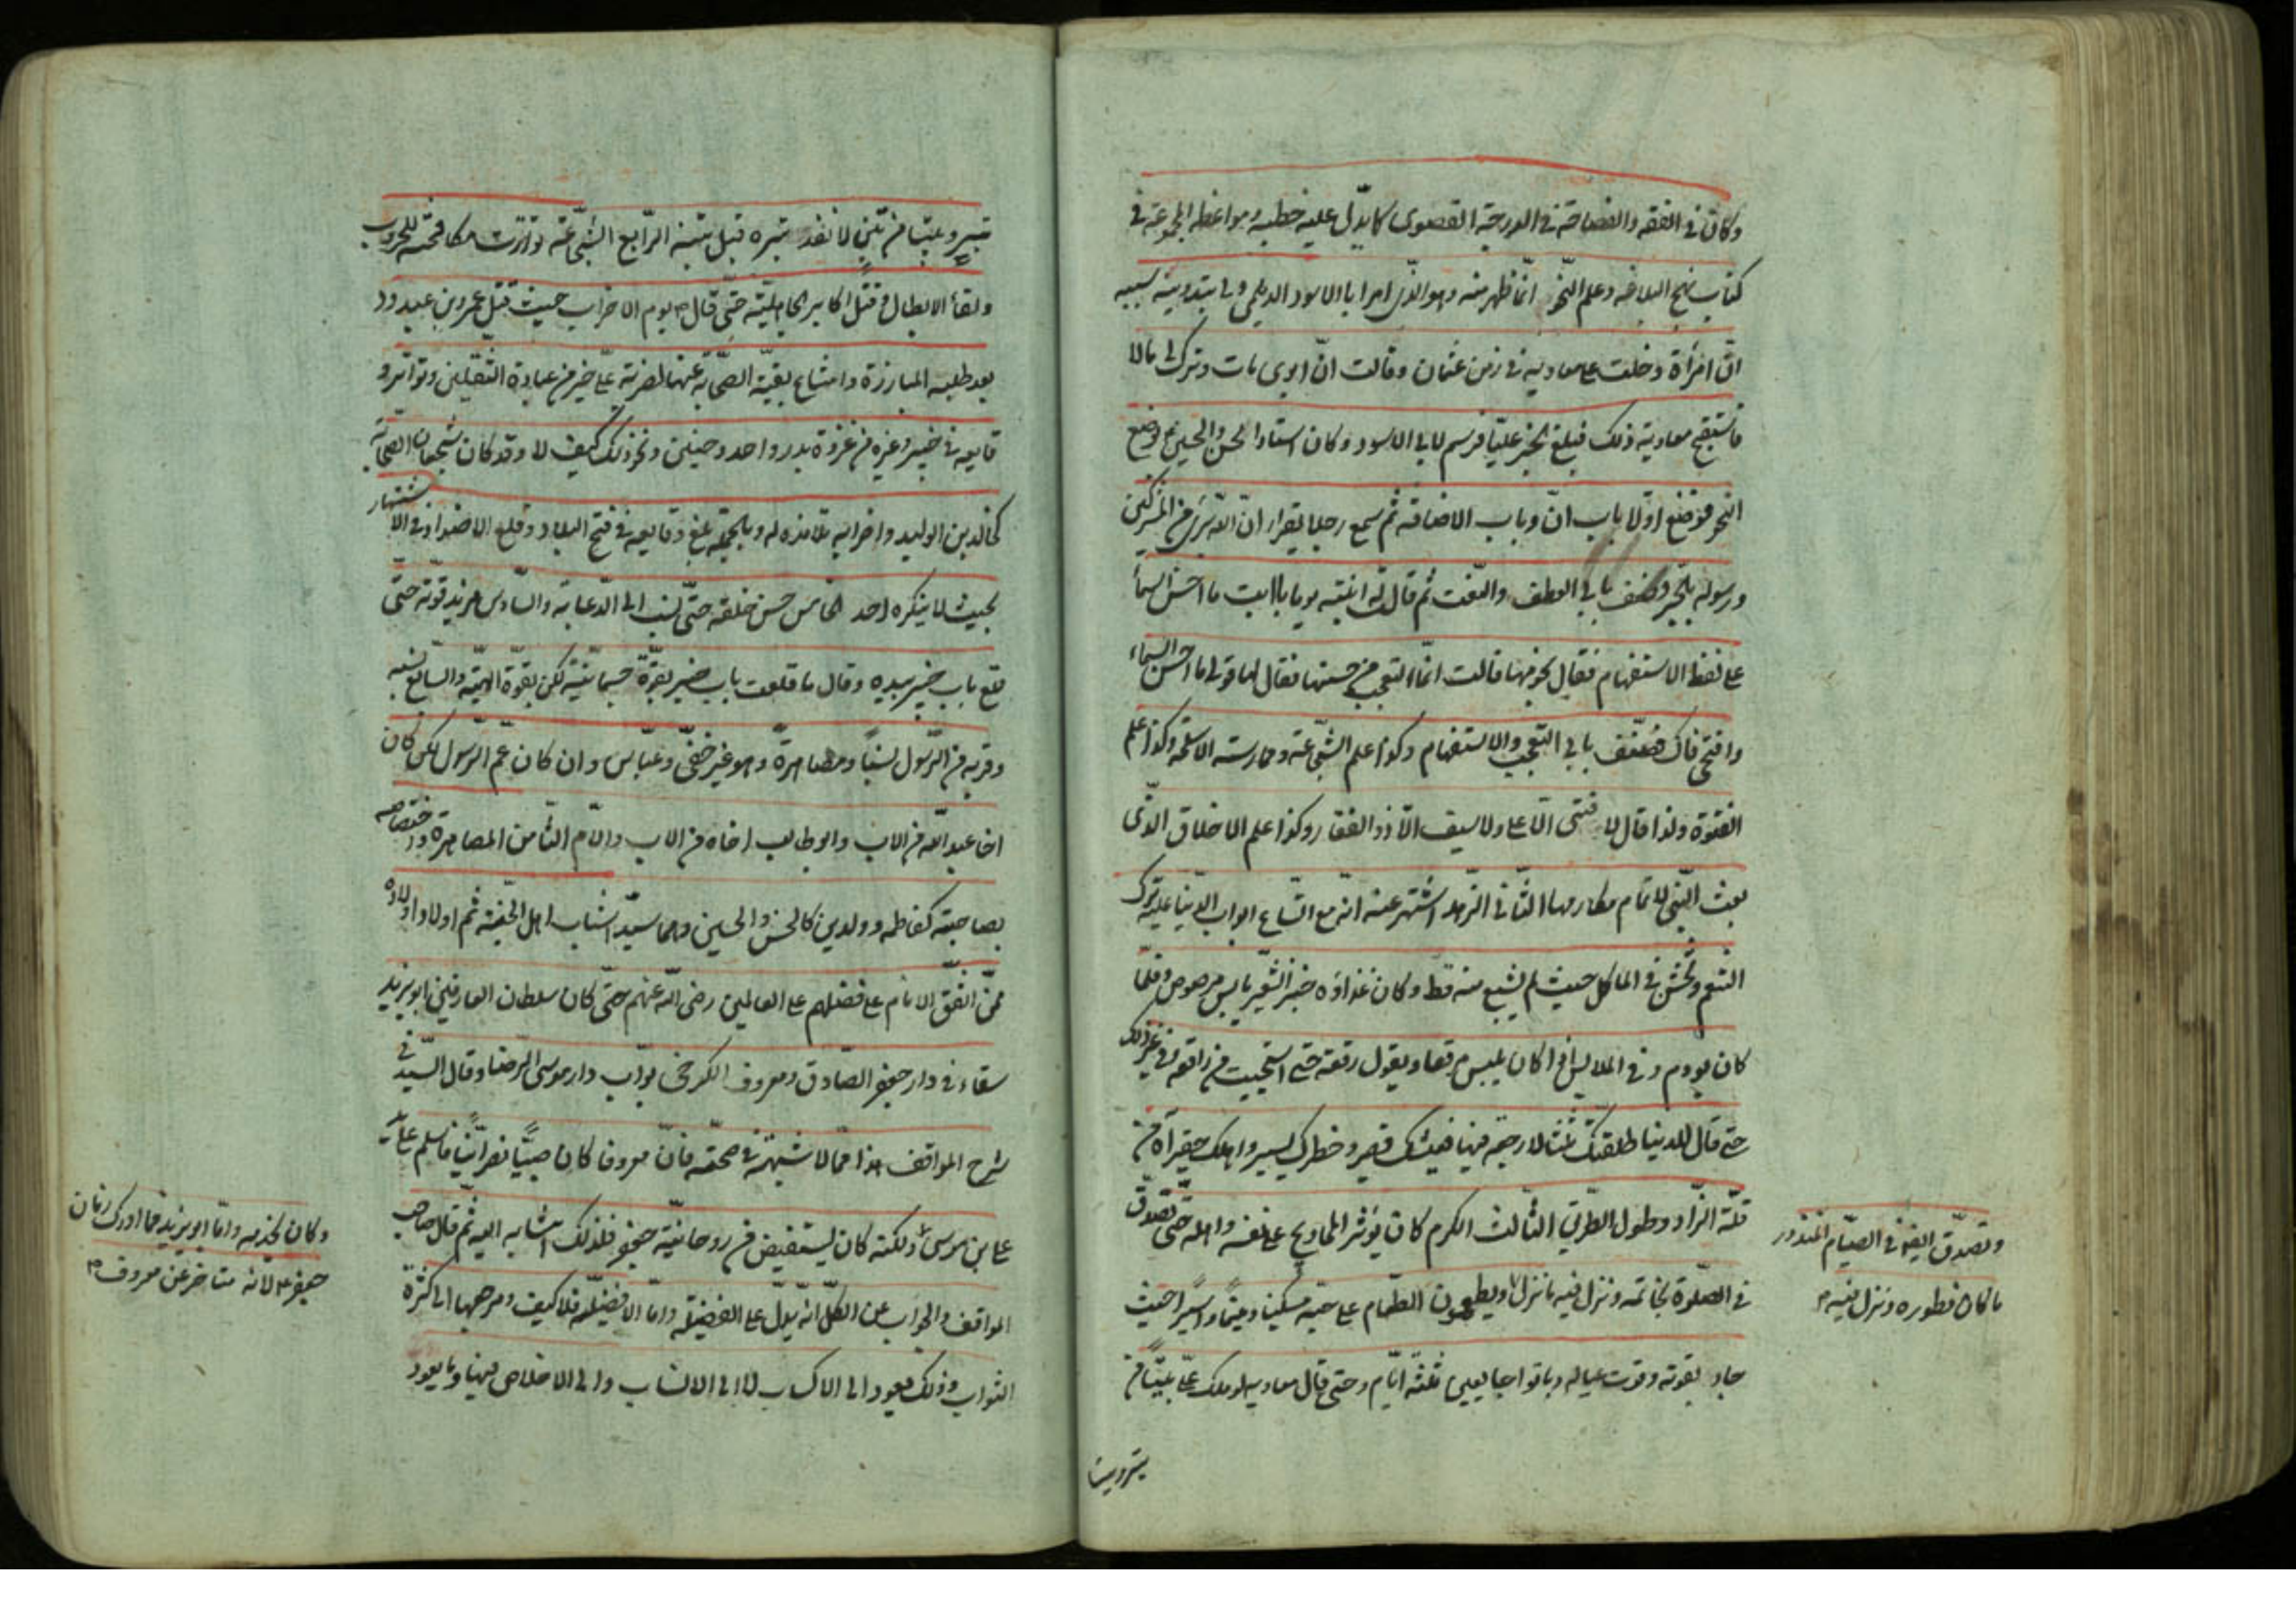 وكان في الفقه والفصاحة في الدرجة القصوى كما يدل عليه خطبه ومواعظه المجموعة في
كتاب نهج البلاغه وعلم النحو انما ظهر منه وهو الذي امر ابا الاسود الديلمي في تدوينه لسببه
ان امرأة دخلت على معاوية في زمن عثمان وقالت ان ابوي مات وترك لي مالا
فاستقبح معاوية ذلك فبلغ الخبر عليّا فرسم لابي الاسود وكان استاد الحسن والحسين ع فوضع
النحو فوضع اولا باب انّ وباب الاضافة ثم سمع رجلا يقرأ ان الله برئ من المشركين
ورسوله بالجر فصنف بابي العطف والنعت ثم قال له ابنته يوما يا ابت ما احسن السماء
على لفظ الاستفهام فقال نجومها فقالت انما اتعجب من حسنها فقال لها قولي ما احسن السماء
وافتحي فاك فصنف بابي التعجب والاستفهام وكذا علم الشجاعة وممارسة الاسلحة وكذا علم
الفتوة ولذا قال لا فتى الا علي ولا سيف الا ذو الفقار وكذا علم الاخلاق الذي
بعث النبي لاتمام مكارمها الثاني الزهد اشتهر عنه انه مع اتساع ابواب الدنيا عليه ترك
التنعم وتخشن في المآكل حيث لم يشبع منه قط وكان غذاؤه خبز الشعير يابس مرصوص وقلما
كان يودم وفي الملابس اذا كان يلبس مرقعا ويقول رقعته حتى استحييت من راقعه وفي غير ذلك
حتى قال للدنيا طلقتك ثلثا لا رجعة فيها فعيشك قصير وخطرك يسير واملك حقير آه من
قلة الزاد وطول الطريق الثالث الكرم كان يؤثر المحاويج على نفسه واهله حتى تصدق
في الصلوة بخاتمه ونزل فيه ما نزل ويطعمون الطعام على حبه مسكينا ويتيما واسيرا حيث
جاد بقوته وقوت عياله وباتوا جايعين ثلثة ايام وحتى قال معاويه لو ملك علي بيتا من
وتصدق ايضا في الصيام المنذور
ما كان فطوره ونزل فيه
تبر وبيتا
تبر وبيتا من تبن لانفد تبره قبل تبنه الرابع الشجاعة تواترت مكافحته للحروب
ولقاء الابطال وقتل اكابر الجاهلية حتى قال ص يوم الاحزاب حيث قتل عمرو بن عبد ود
بعد طلبه المبارزة وامتناع بقية الصحابه عنها لضربة علي خير من عبادة الثقلين وتواتر و
قايعه في خيبر وغيره من غزوة بدر واحد وحنين ونحو ذلك كيف لا وقد كان شجعان الصحابة
كخالد بن الوليد واضرابه تلامذه له وبالجملة بلغ وقايعه في فتح البلاد وقلع الاضداد في الاشتهار
بحيث لا ينكره احد الخامس حسن خلقه حتى نسب الى الدعابة والسادس مزيد قوته حتى
قلع باب خيبر بيده وقال ما قلعت باب خيبر بقوة جسمانية لكن بقوة الهية والسابع نسبه
وقربه من الرسول نسبا ومصاهرة وهو غير خفي وعباس وان كان عم الرسول لكن كان
اخا عبد الله من الاب وابو طالب اخاه من الاب والام الثامن المصاهرة واختصاصه
بصاحبة كفاطمه وولدين كالحسن والحسين وهما سيدا شباب اهل الجنة ثم اولاد اولاده
ممن اتفق الانام على فضلهم على العالمين رضي الله عنهم حتى كان سلطان العارفين ابو يزيد
سقاء في دار جعفر الصادق ومعروف الكرخي بواب دار موسى الرضا وقال السيد في
شرح المواقف هذا مما لا شبهة في صحته فان معروفا كان صبيا نصرانيا فاسلم على يد
علي بن موسى ولكنه كان يستفيض من روحانية جعفر فلذلك انتسابه اليه ثم قال صاحب
المواقف والجواب عن الكل انه يدل على الفضيلة واما الافضلية فلا كيف ومرجعها الى كثرة
الثواب وذلك يعود الى الاكتساب لا الى الانساب والى الاخلاص فيها وما يعود
وكان يخدمه واما ابو يزيد فما ادرك زمان
جعفر ع لانه متاخر عن معروف